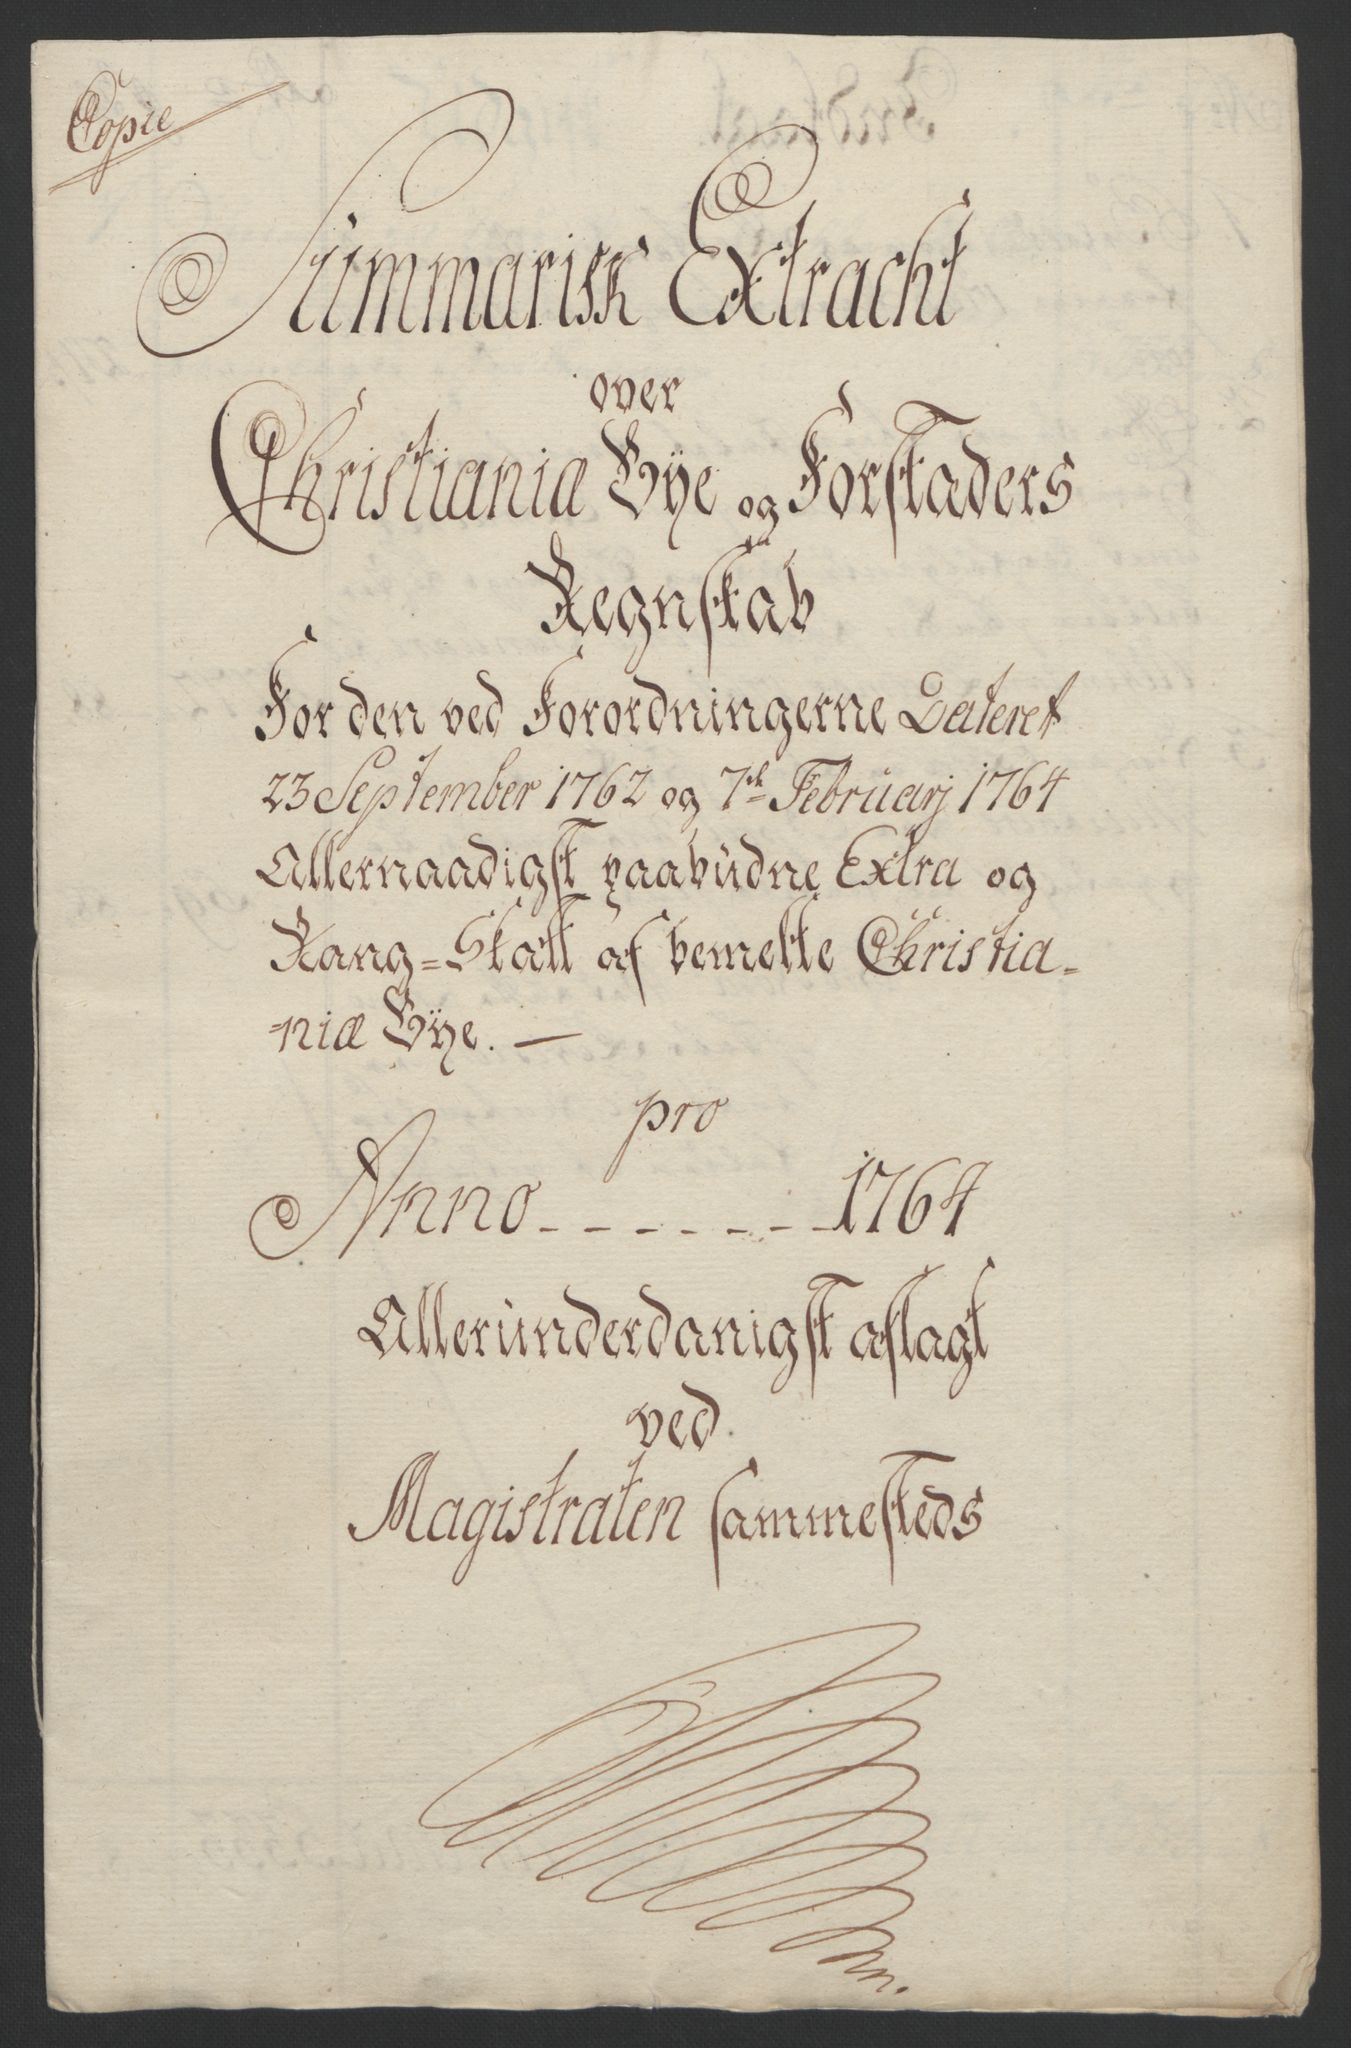 Copie
Summarisk Extracht
over
Christianiæ Bÿe og Forstaders
Regnskab
For den ved Forordningerne Dateret
23 September 1762 og 7de Februarj 1764
Allernaadigst paabudne Extra og
Rang=Skatt af bemelte Christia-
niæ Bÿe. —
pro
Anno - - - - - - - 1764
Allerunderdanigst aflagt
ved
Magistraten sammesteds